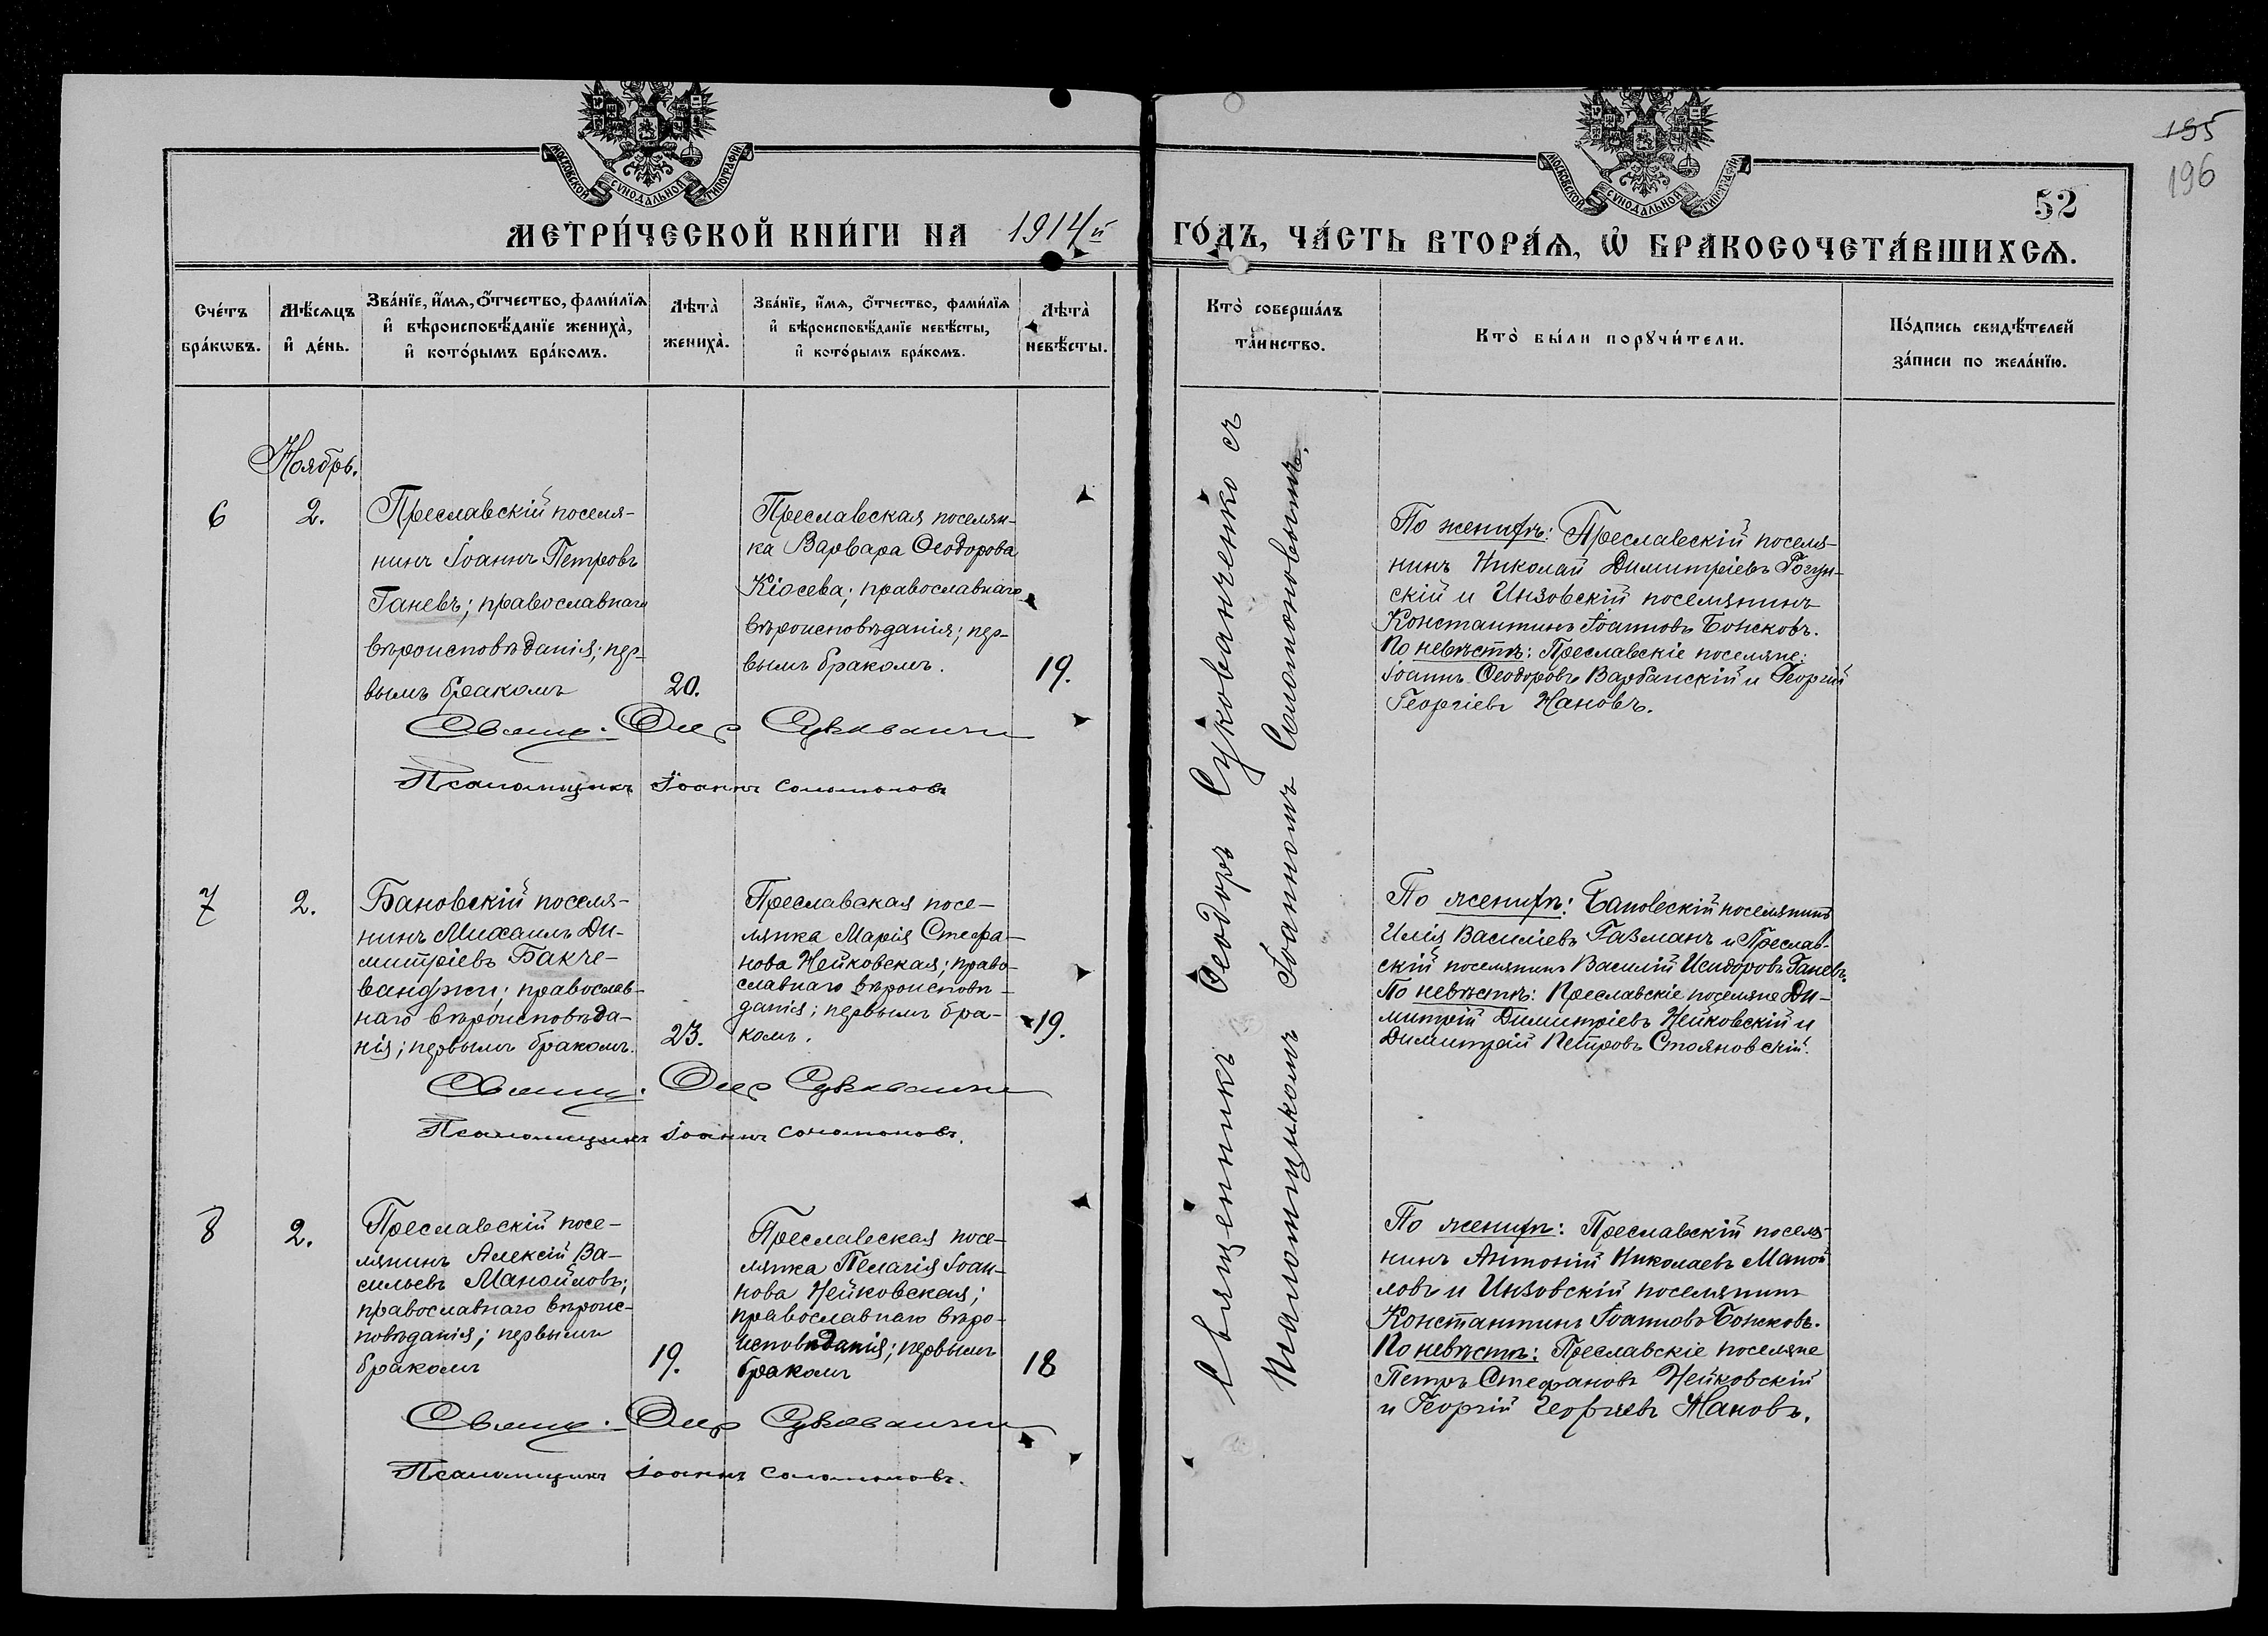 МОСКОВСКОЙ СѴНОДАЛЬНОЙ ТИПОГРАФІИ
МОСКОВСКОЙ СѴНОДАЛЬНОЙ ТИПОГРАФІИ
195
196
52
МЕТРИ́ЧЕСКОЙ КНИ́ГИ НА 1914й
ГО́ДЪ, ЧА́СТЬ ВТОРА́Ѧ, Ѡ҆ БРАКОСОЧЕТА́ВШИХСѦ.
Сче́тъ
бра́кѡвъ.
Мѣ́сѧцъ
и҆ де́нь.
Зва́нїе, и҆́мѧ, ѻ҆́тчество, фами́лїѧ
и҆ вѣроисповѣ́данїе жениха̀,
и҆ кото́рымъ бра́комъ.
Лѣта̀
жениха̀.
Зва́нїе, и҆́мѧ, ѻ҆́тчество, фами́лїѧ
и҆ вѣроисповѣ́данїе невѣ́сты,
и҆ кото́рымъ бра́комъ.
Лѣта̀
невѣ́сты.
Кто̀ соверша́лъ
та́инство.
Кто̀ бы́ли порꙋчи́тели.
По́дпись свидѣ́телей
за́писи по жела́нїю.
Ноябрь.
6
2.
Преславскій поселя-
нинъ Іоаннъ Петровъ
Ганевъ; православнаго
вѣроисповѣданія; пер-
вымъ бракомъ
20.
Преславская поселян-
ка Варвара Ѳеодорова
Кіосева; православнаго
вѣроисповѣданія; пер-
вымъ бракомъ.
19.
По женихѣ: Преславскій поселя-
нинъ Николай Димитріевъ Гогун-
скій и Инзовскій поселянинъ
Константинъ Іоанновъ Божковъ.
По невѣстѣ: Преславскіе поселяне:
Іоаннъ Ѳеодоровъ Варбанскій и Георгій
Георгіевъ Жановъ.
Псаломщикъ Іоаннъ Соломоновъ
7
2.
Бановскій поселя-
нинъ Михаилъ Ди-
митріевъ Бакче-
ванджи; православ-
наго вѣроисповѣда-
нія; первымъ бракомъ.
23.
Преславская посе-
лянка Марія Стефа-
нова Нейковская; право-
славнаго вѣроисповѣ-
данія; первымъ бра-
комъ.
19.
По женихѣ: Бановскій поселянинъ
Илія Василіевъ Газманъ и Преслав-
скій поселянинъ Василій Исидоровъ Ганевъ.
По невѣстѣ: Преславскіе поселяне Ди-
митрій Димитріевъ Нейковскій и
Димитрій Петровъ Стояновскій.
Псаломщикъ Іоаннъ Соломоновъ.
8
2.
Преславскій посе-
лянинъ Алексій Ва-
сильевъ Манойловъ;
православнаго вѣроис-
повѣданія; первымъ
бракомъ
19.
Преславская посе-
лянка Пелагія Іоан-
нова Нейковская;
православнаго вѣро-
исповѣданія; первымъ
бракомъ
18
По женихѣ: Преславскій поселя-
нинъ Антоній Николаевъ Маной-
ловъ и Инзовскій поселянинъ
Константинъ Іоанновъ Божковъ.
По невѣстѣ: Преславскіе поселяне
Петръ Стефановъ Нейковскій
и Георгій Георгіевъ Жановъ.
Псаломщикъ Іоаннъ Соломоновъ.
Священникъ Ѳеодоръ Сукованченко съ
псаломщикомъ Іоанномъ Соломоновымъ.